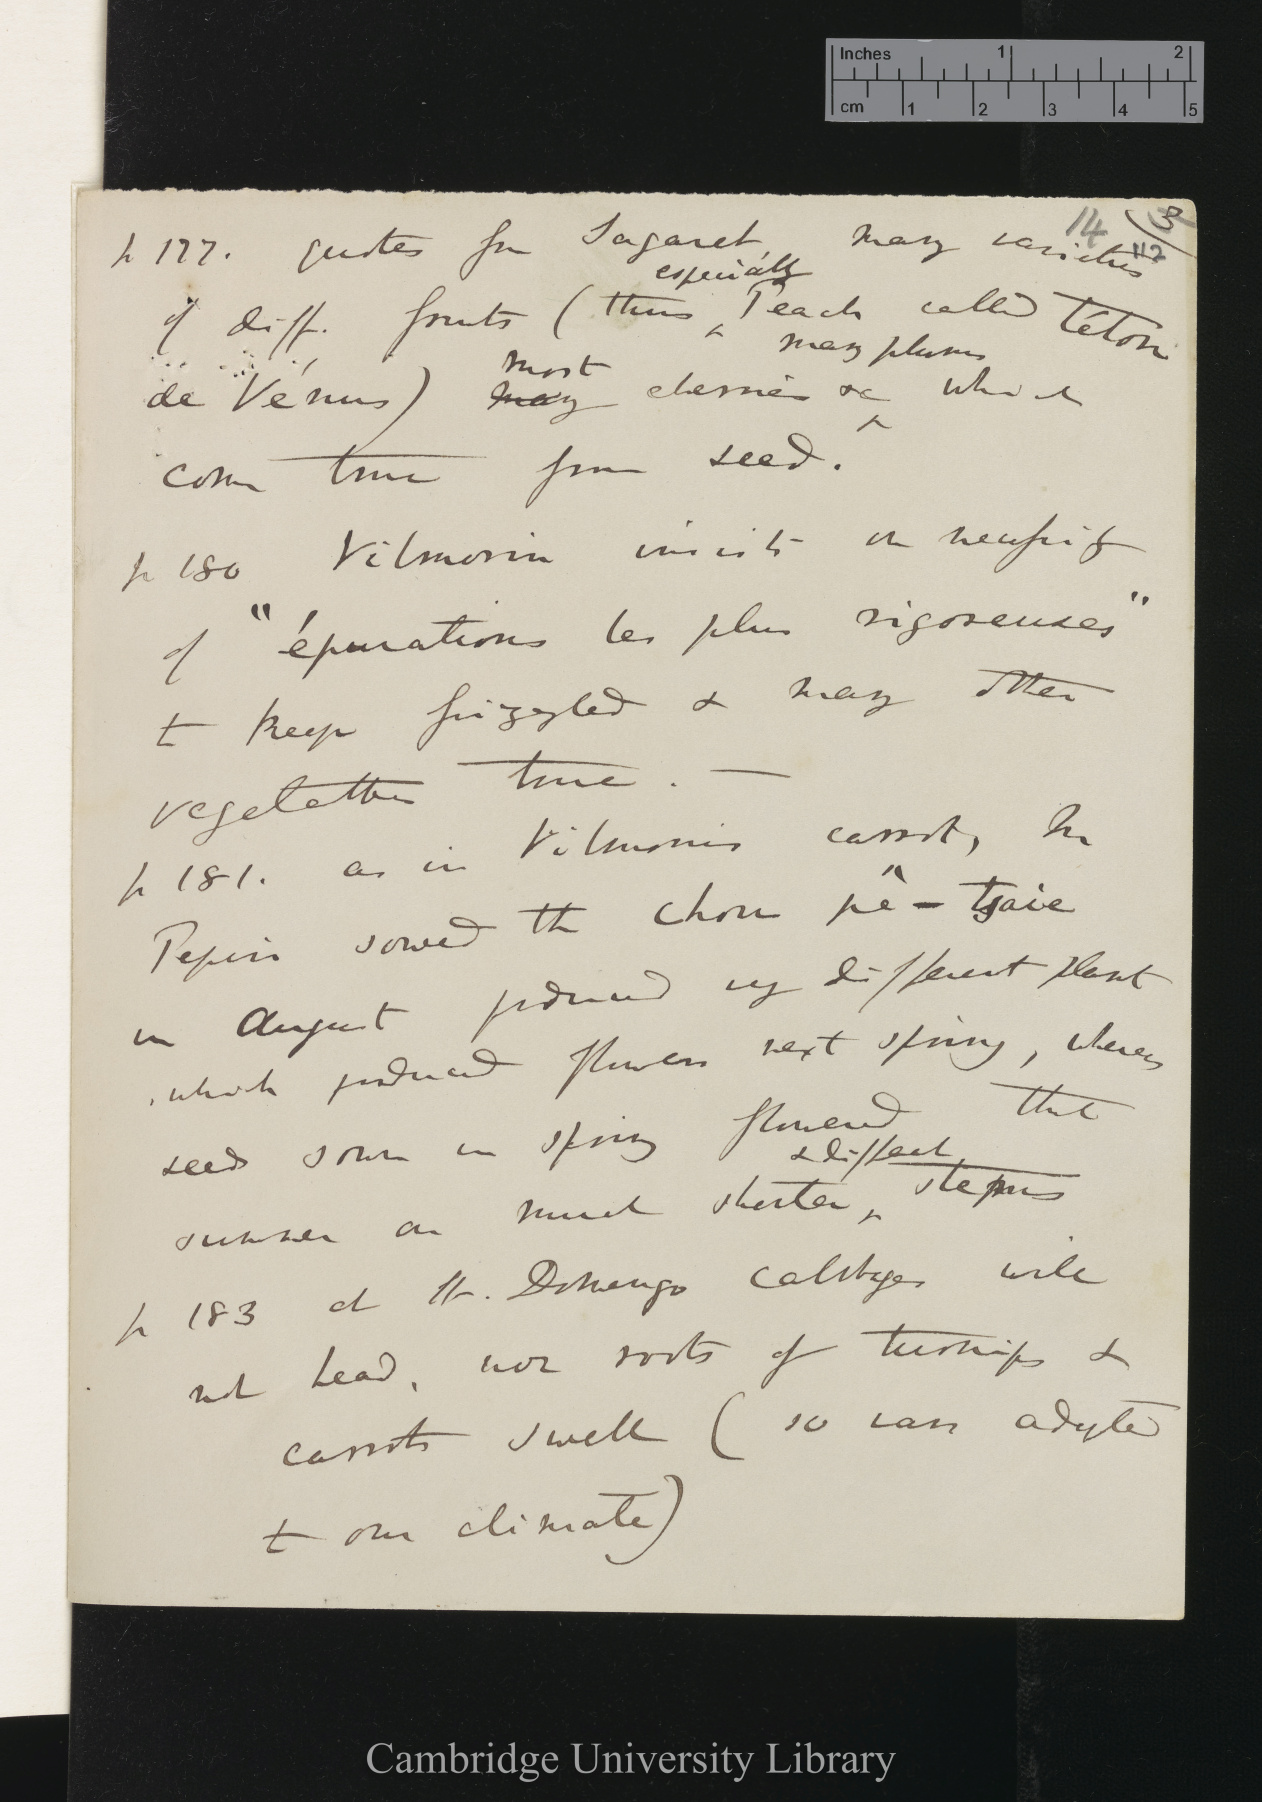 Inches 1 2
cm 1 2 3 4 5
14 (3
112
p 177. quotes fm Sageret many varieties
especially
of diff. fruits (thus ^ Peach called Téton
most many plums
de Vénus) many cherries &c ^ which
come true from seed.
p 180 Vilmorin insists on necessity
of "épurations les plus rigoreuses"
to keep frizzled & many other
vegetables true. —
p 181. as in Vilmorins carrot, Mr
Pepin sowed the chou pê-tsaie
in August produced very different plant
which produced flowers next spring, whereas
seeds sown in spring flowered that
& different
summer on much shorter ^ stems
p 183 at St. Domengo cabbages will
not head, nor roots of turnips &
carrots swell (so are adapted
to our climate)
Cambridge University Library